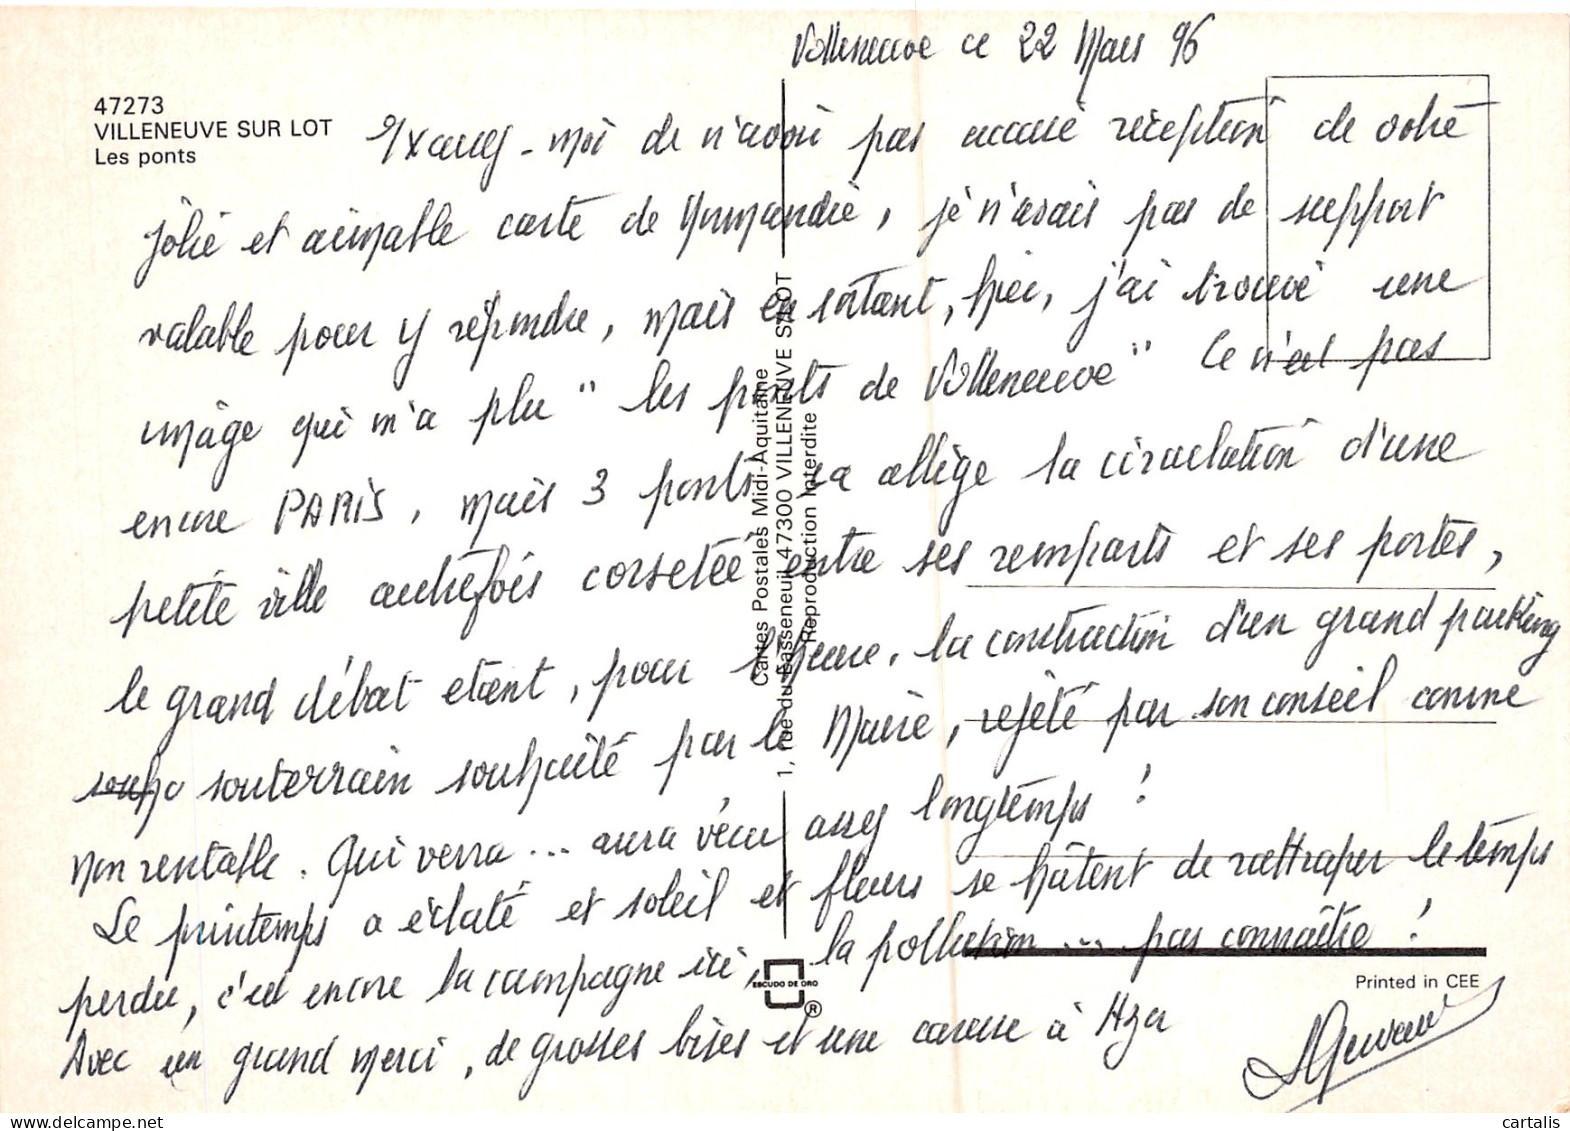 Villeneuve ce 22 Mars 96
47273
VILLENEUVE SUR LOT
Les ponts
Excusez-moi de n'avoir pas accusé réception de votre
jolie et aimable carte de Normandie, je n'avais pas de support
valable pour y répondre, mais en sortant, hier, j'ai trouvé une
image qui m'a plu "les ponts de Villeneuve" Ce n'est pas
encore PARIS, mais 3 ponts ça allège la circulation d'une
petite ville autrefois corsetée entre ses remparts et ses portes,
le grand débat étant, pour l'heure, la construction d'un grand parking
souterrain souhaité par le Maire, rejeté par son conseil comme
non rentable. Qui verra... aura vécu assez longtemps !
Le printemps a éclaté et soleil et fleurs se hâtent de rattraper le temps
perdu, c'est encore la campagne ici, la pollution... pas connaître !
Avec un grand merci, de grosses bises et une caresse à Aza
Cartes Postales Midi-Aquitaine
1, rue du Fasseneuil 47300 VILLENEUVE S/LOT
Reproduction Interdite
ESCUDO DE ORO
®
Printed in CEE
cartalis